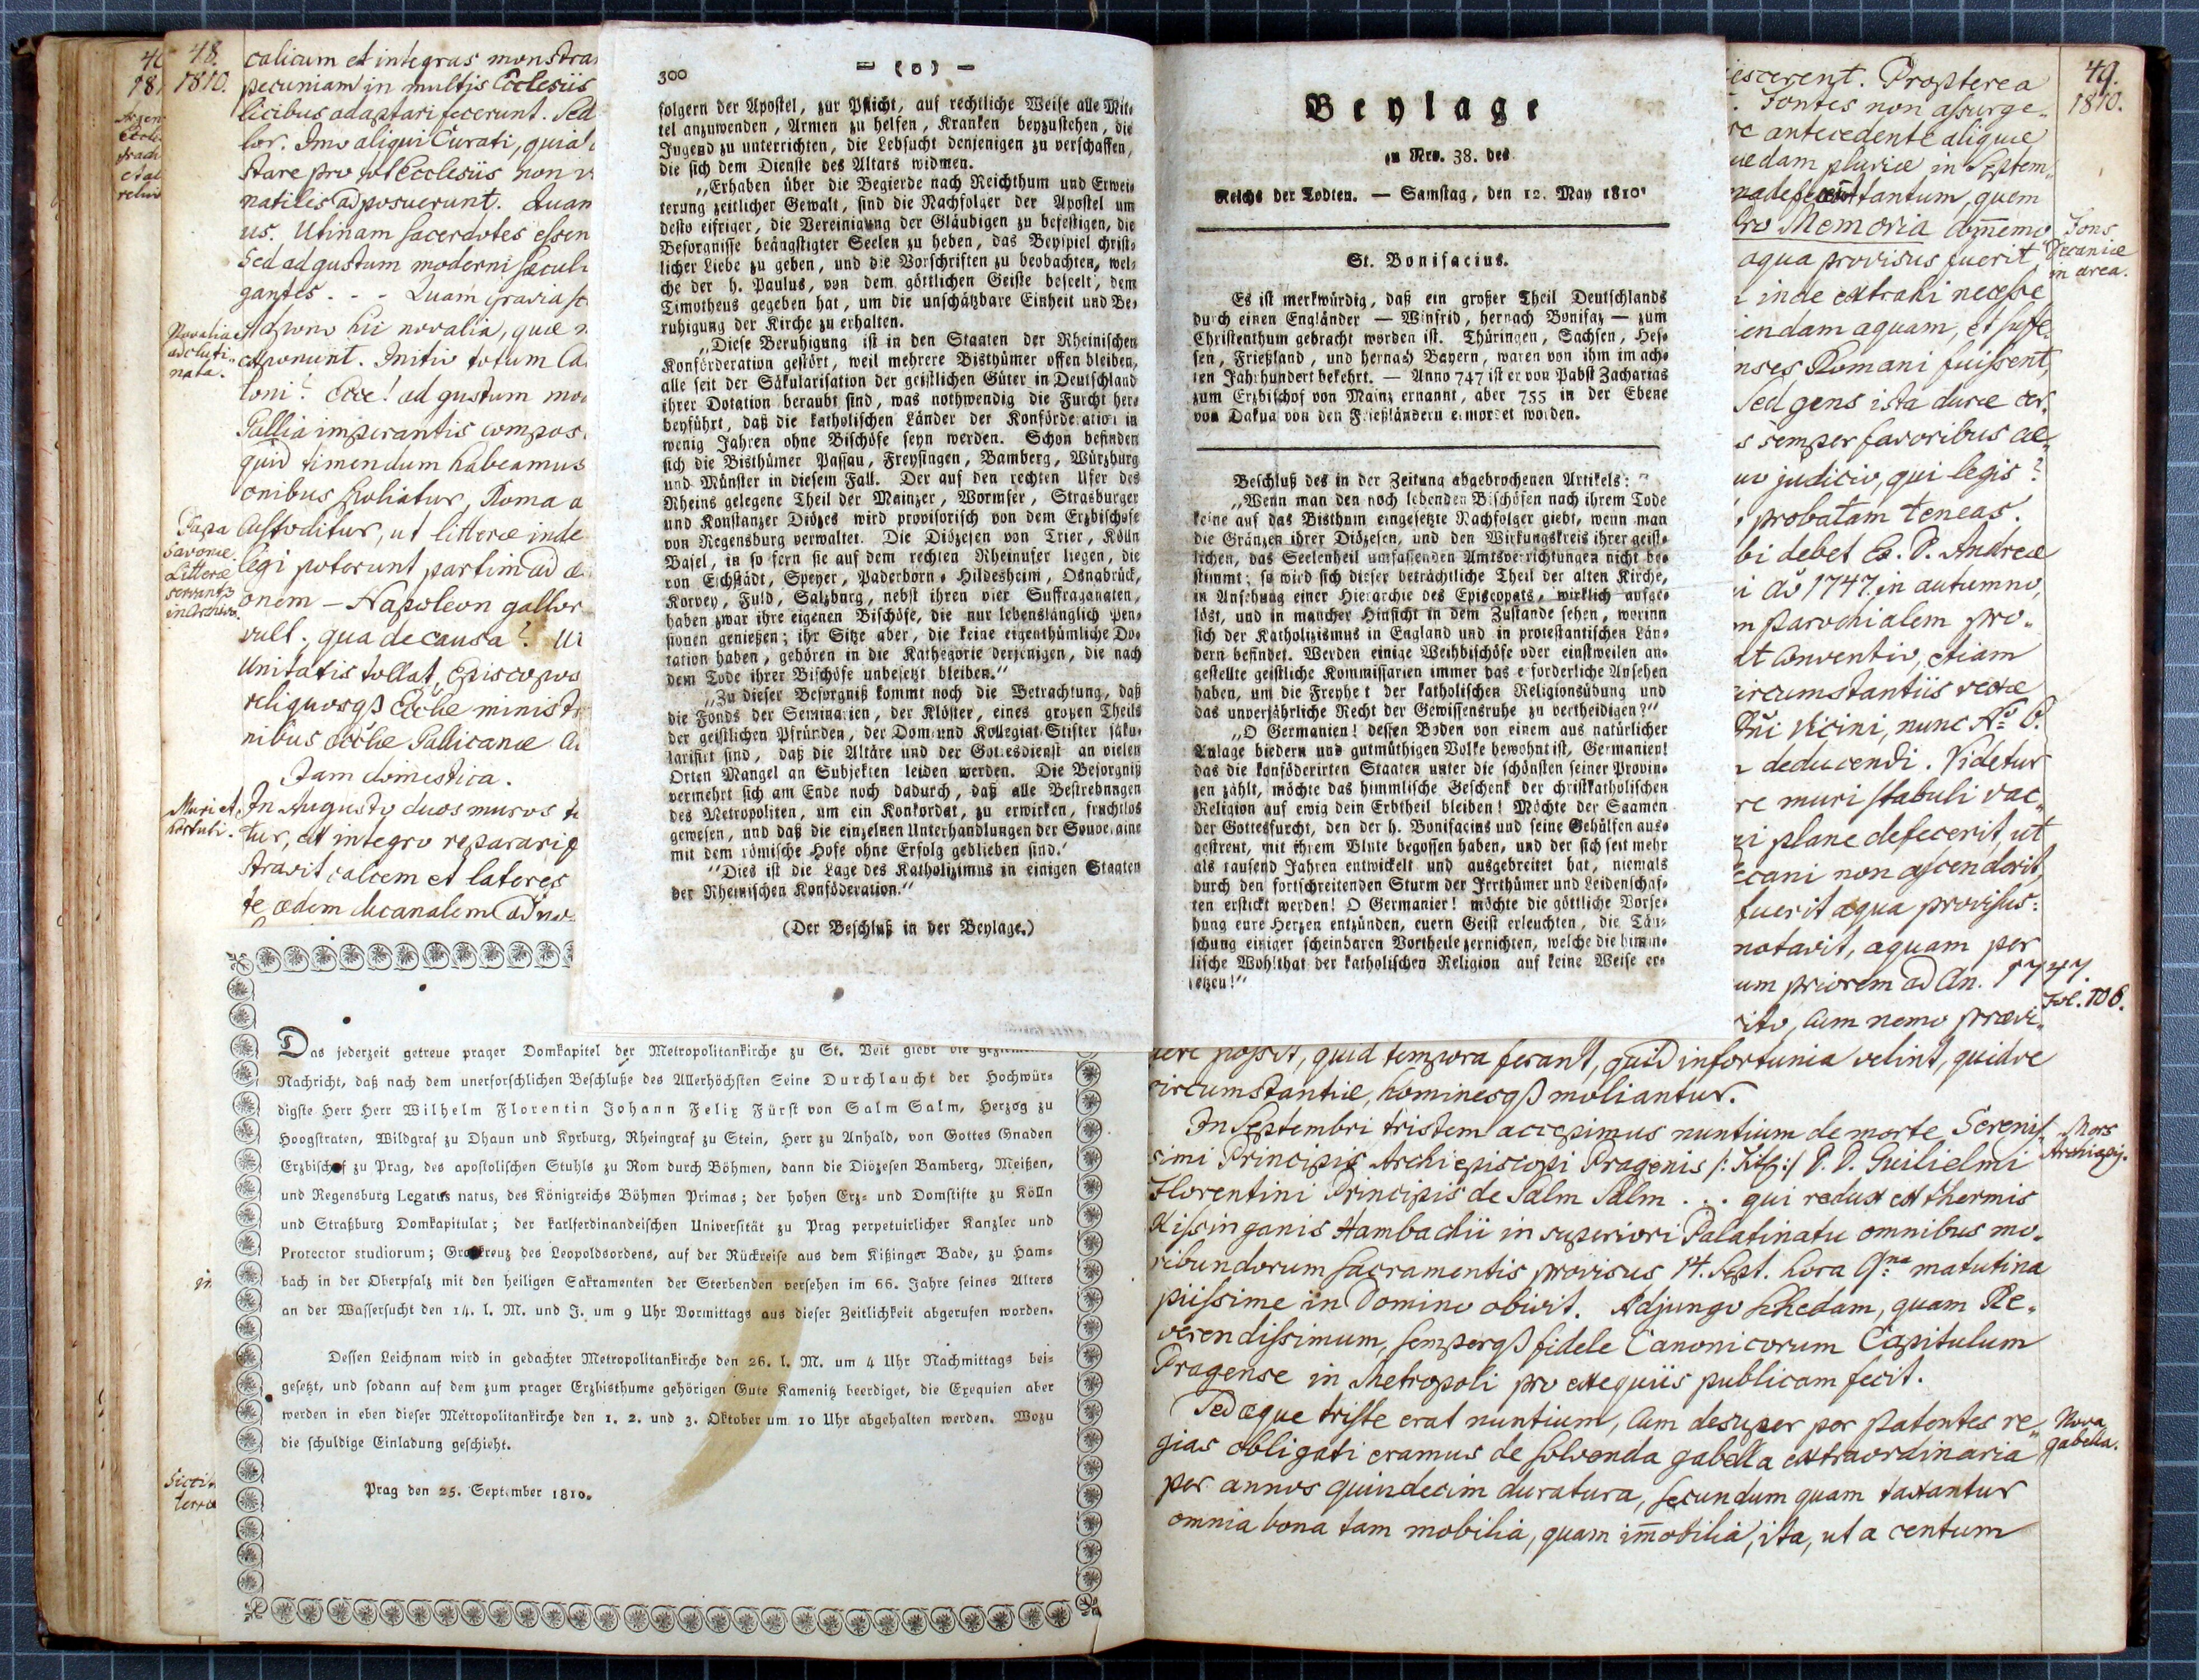 48.
1810.
calicum et integras monstra
pecuniam in multis Ecclesiis
licibus adaptari fecerunt. Sed
lor. Imo aliqui Curati, quia
stare pro Ecclesiis non
natilis adposuerunt. Quam
us. Utinam sacerdotes essen
Sed ad gustum moderni sæculi
gantes. - - Quam gravia
Adjuno hic novalia, quæ
exponunt. Initio totum
toni? Ecce! ad gustum mo
Gallia imperantis compos
quid timendum habeamus
onibus spoliatur, Roma a
Custoditur, ut litteræ inde
legi poterunt partim ad æ
onem – Napoleon gallor
vult. qua de causa? ut
Unitatis tollat, Episcopos
reliquosqß Ecclæ ministr
nibus Ecclæ Gallicanæ
Jam domestica.
Muri et
hortuli.
In Augusto duos muros
tur, ex integro reparari
stravit calcem et lateres
te ædem decanalem ad
Papa
Savonæ.
Litteræ
300
— (0) —
folgern der Apostel, zur Pflicht, auf rechtliche Weise alle Mit-
tel anzuwenden, Armen zu helfen, Kranken beyzustehen, die
Jugend zu unterrichten, die Lebsucht denjenigen zu verschaffen,
die sich dem Dienste des Altars widmen.
„Erhaben über die Begierde nach Reichthum und Erwei-
terung zeitlicher Gewalt, sind die Nachfolger der Apostel um
desto eifriger, die Vereinigung der Gläubigen zu befestigen, die
Besorgnisse beängstigter Seelen zu heben, das Beyspiel christ-
licher Liebe zu geben, und die Vorschriften zu beobachten, wel-
che der h. Paulus, von dem göttlichen Geiste beseelt, dem
Timotheus gegeben hat, um die unschätzbare Einheit und Be-
ruhigung der Kirche zu erhalten.
„Diese Beruhigung ist in den Staaten der Rheinischen
Konförderation gestört, weil mehrere Bisthümer offen bleiben,
alle seit der Säkularisation der geistlichen Güter in Deutschland
ihrer Dotation beraubt sind, was nothwendig die Furcht her-
beyführt, daß die katholischen Länder der Konförderation in
wenig Jahren ohne Bischöfe seyn werden. Schon befinden
sich die Bisthümer Passau, Freysingen, Bamberg, Würzburg
und Münster in diesem Fall. Der auf den rechten Ufer des
Rheins gelegene Theil der Mainzer, Wormser, Strasburger
und Konstanzer Diözes wird provisorisch von dem Erzbischofe
von Regensburg verwaltet. Die Diözesen von Trier, Kölln
Basel, in so fern sie auf dem rechten Rheinufer liegen, die
von Eichstädt, Speyer, Paderborn, Hildesheim, Osnabrück,
Korvey, Fuld, Salzburg, nebst ihren vier Suffraganaten,
haben zwar ihre eigenen Bischöfe, die nur lebenslänglich Pen-
sionen genießen; ihr Sitze aber, die keine eigenthümliche Do-
tation haben, gehören in die Kathegorie derjenigen, die nach
dem Tode ihrer Bischöfe unbesetzt bleiben."
„Zu dieser Besorgniß kommt noch die Betrachtung, daß
die Fonds der Seminarien, der Klöster, eines großen Theils
der geistlichen Pfründen, der Dom- und Kollegiat-Stifter säku-
larisirt sind, daß die Altäre und der Gottesdienst an vielen
Orten Mangel an Subjekten leiden werden. Die Besorgniß
vermehrt sich am Ende noch dadurch, daß alle Bestrebungen
des Metropoliten, um ein Konkordat, zu erwirken, fruchtlos
gewesen, und daß die einzelnen Unterhandlungen der Souveraine
mit dem römische Hofe ohne Erfolg geblieben sind.
"Dies ist die Lage des Katholizimus in einigen Staaten
der Rheinischen Konföderation."
(Der Beschluß in der Beylage.)
Das jederzeit getreue prager Domkapitel der Metropolitankirche zu St. Veit giebt die
Nachricht, daß nach dem unerforschlichen Beschluße des Allerhöchsten Seine Durchlaucht der Hochwür-
digste Herr Herr Wilhelm Florentin Johann Felix Fürst von Salm Salm, Herzog zu
Hoogstraten, Wildgraf zu Dhaun und Kyrburg, Rheingraf zu Stein, Herr zu Anhald, von Gottes Gnaden
Erzbischof zu Prag, des apostolischen Stuhls zu Rom durch Böhmen, dann die Diözesen Bamberg, Meißen,
und Regensburg Legatus natus, des Königreichs Böhmen Primas; der hohen Erz- und Domstifte zu Kölln
und Straßburg Domkapitular; der karlferdinandeischen Universität zu Prag perpetuirlicher Kanzler und
Protector studiorum; Großkreuz des Leopoldsordens, auf der Rückreise aus dem Kißinger Bade, zu Ham-
bach in der Oberpfalz mit den heiligen Sakramenten der Sterbenden versehen im 66. Jahre seines Alters
an der Wassersucht den 14. l. M. und J. um 9 Uhr Vormittags aus dieser Zeitlichkeit abgerufen worden.
Dessen Leichnam wird in gedachter Metropolitankirche den 26. l. M. um 4 Uhr Nachmittags bei-
gesetzt, und sodann auf dem zum prager Erzbisthume gehörigen Gute Kamenitz beerdiget, die Exequien aber
werden in eben dieser Metropolitankirche den 1. 2. und 3. Oktober um 10 Uhr abgehalten werden. Wozu
die schuldige Einladung geschieht.
Prag den 25. September 1810.
Beylage
zu Nro. 38. des
Reichs der Todten. — Samstag, den 12. May 1810.
St. Bonifacius.
Es ist merkwürdig, daß ein großer Theil Deutschlands
durch einen Engländer — Winfrid, hernach Bonifaz — zum
Christenthum gebracht worden ist. Thüringen, Sachsen, Hes-
sen, Frießland, und hernach Bayern, waren von ihm im ach-
ten Jahrhundert bekehrt. — Anno 747 ist er von Pabst Zacharias
zum Erzbischof von Mainz ernannt, aber 755 in der Ebene
von Dakua von den Frießländern ermordet worden.
Beschluß des in der Zeitung abgebrochenen Artikels:
„Wenn man den noch lebenden Bischöfen nach ihrem Tode
keine auf das Bisthum eingesetzte Nachfolger giebt, wenn man
die Gränzen ihrer Diözesen, und den Wirkungskreis ihrer geist-
lichen, das Seelenheil umfassenden Amtsverrichtungen nicht be-
stimmt; so wird sich dieser beträchtliche Theil der alten Kirche,
in Ansehung einer Hierarchie des Episcopats, wirklich aufge-
löst, und in mancher Hinsicht in dem Zustande sehen, worinn
sich der Katholizismus in England und in protestantischen Län-
dern befindet. Werden einige Weihbischöfe oder einstweilen an-
gestellte geistliche Kommissarien immer das erforderliche Ansehen
haben, um die Freyheit der katholischen Religionsübung und
das unverjährliche Recht der Gewissensruhe zu vertheidigen?"
„O Germanien! dessen Boden von einem aus natürlicher
Anlage biedern und gutmüthigen Volke bewohnt ist, Germanien!
das die konföderirten Staaten unter die schönsten seiner Provin-
zen zählt, möchte das himmlische Geschenk der christkatholischen
Religion auf ewig dein Erbtheil bleiben! Möchte der Saamen
der Gottesfurcht, den der h. Bonifacius und seine Gehülfen aus-
gestreut, mit ihrem Blute begossen haben, und der sich seit mehr
als tausend Jahren entwickelt und ausgebreitet hat, niemals
durch den fortschreitenden Sturm der Irrthümer und Leidenschaf-
ten erstickt werden! O Germanier! möchte die göttliche Vorse-
hung eure Herzen entzünden, euern Geist erleuchten, die Täu-
schung einiger scheinbaren Vortheile zernichten, welche die himm-
lische Wohlthat der katholischen Religion auf keine Weise er-
setzen!"
49.
1810.
escerent. Propterea
Fontes non assurge-
antecedente aliquæ
dam pluviæ in Septem-
tantum, quem
Pro Memoria comemo
Fons
Decaniæ
in area.
aqua provisus fuerit
inde extrahi necesse
endam aquam, et suffe-
nses Romani fuissent,
Sed gens ista duræ cer-
s semper favoribus æ
judicio, qui legis?
probatam teneas.
bi debet P. Andreæ
i aõ 1747. in autumno,
n parochialem pro-
Conventio, etiam
circumstantiis rectæ
Vicini, nunc No 6.
deducendi. Videtur
re muri stabuli vac-
i plane defecerit, ut
ecani non ascenderit,
fuerit aqua provisus:
notavit, aquam per
um priorem ad An. 1747.
Fol. 106.
cum nemo prævi-
dere possit, quid tempora ferant, quid infortunia velint, quidve
circumstantiæ, hominesqß moliantur.
In Septembri tristem accepimus nuntium de morte Serenis-
Mors
Archiepi.
simi Principis Archiepiscopi Pragenis /: Tit :/ D. D. Guilielmi
Florentini Principis de Salm Salm . . . qui redux ex thermis
Kissinganis Hambachii in superiori Palatinatu omnibus mo-
ribundorum sacramentis provisus 14. Sept. hora 9na matutina
piissime in Domino obivit. Adjungo schedam, quam Re-
verendissimum, semperqß fidele Canonicorum Capitulum
Pragense in Metropoli pro exequiis publicam fecit.
Sed æque triste erat nuntium, cum desuper per patentes re-
Nova
gabella.
gias obligati eramus de solvenda gabella extraordinaria
per annos quindecim duratura, secundum quam taxantur
omnia bona tam mobilia, quam imobilia, ita, ut a centum